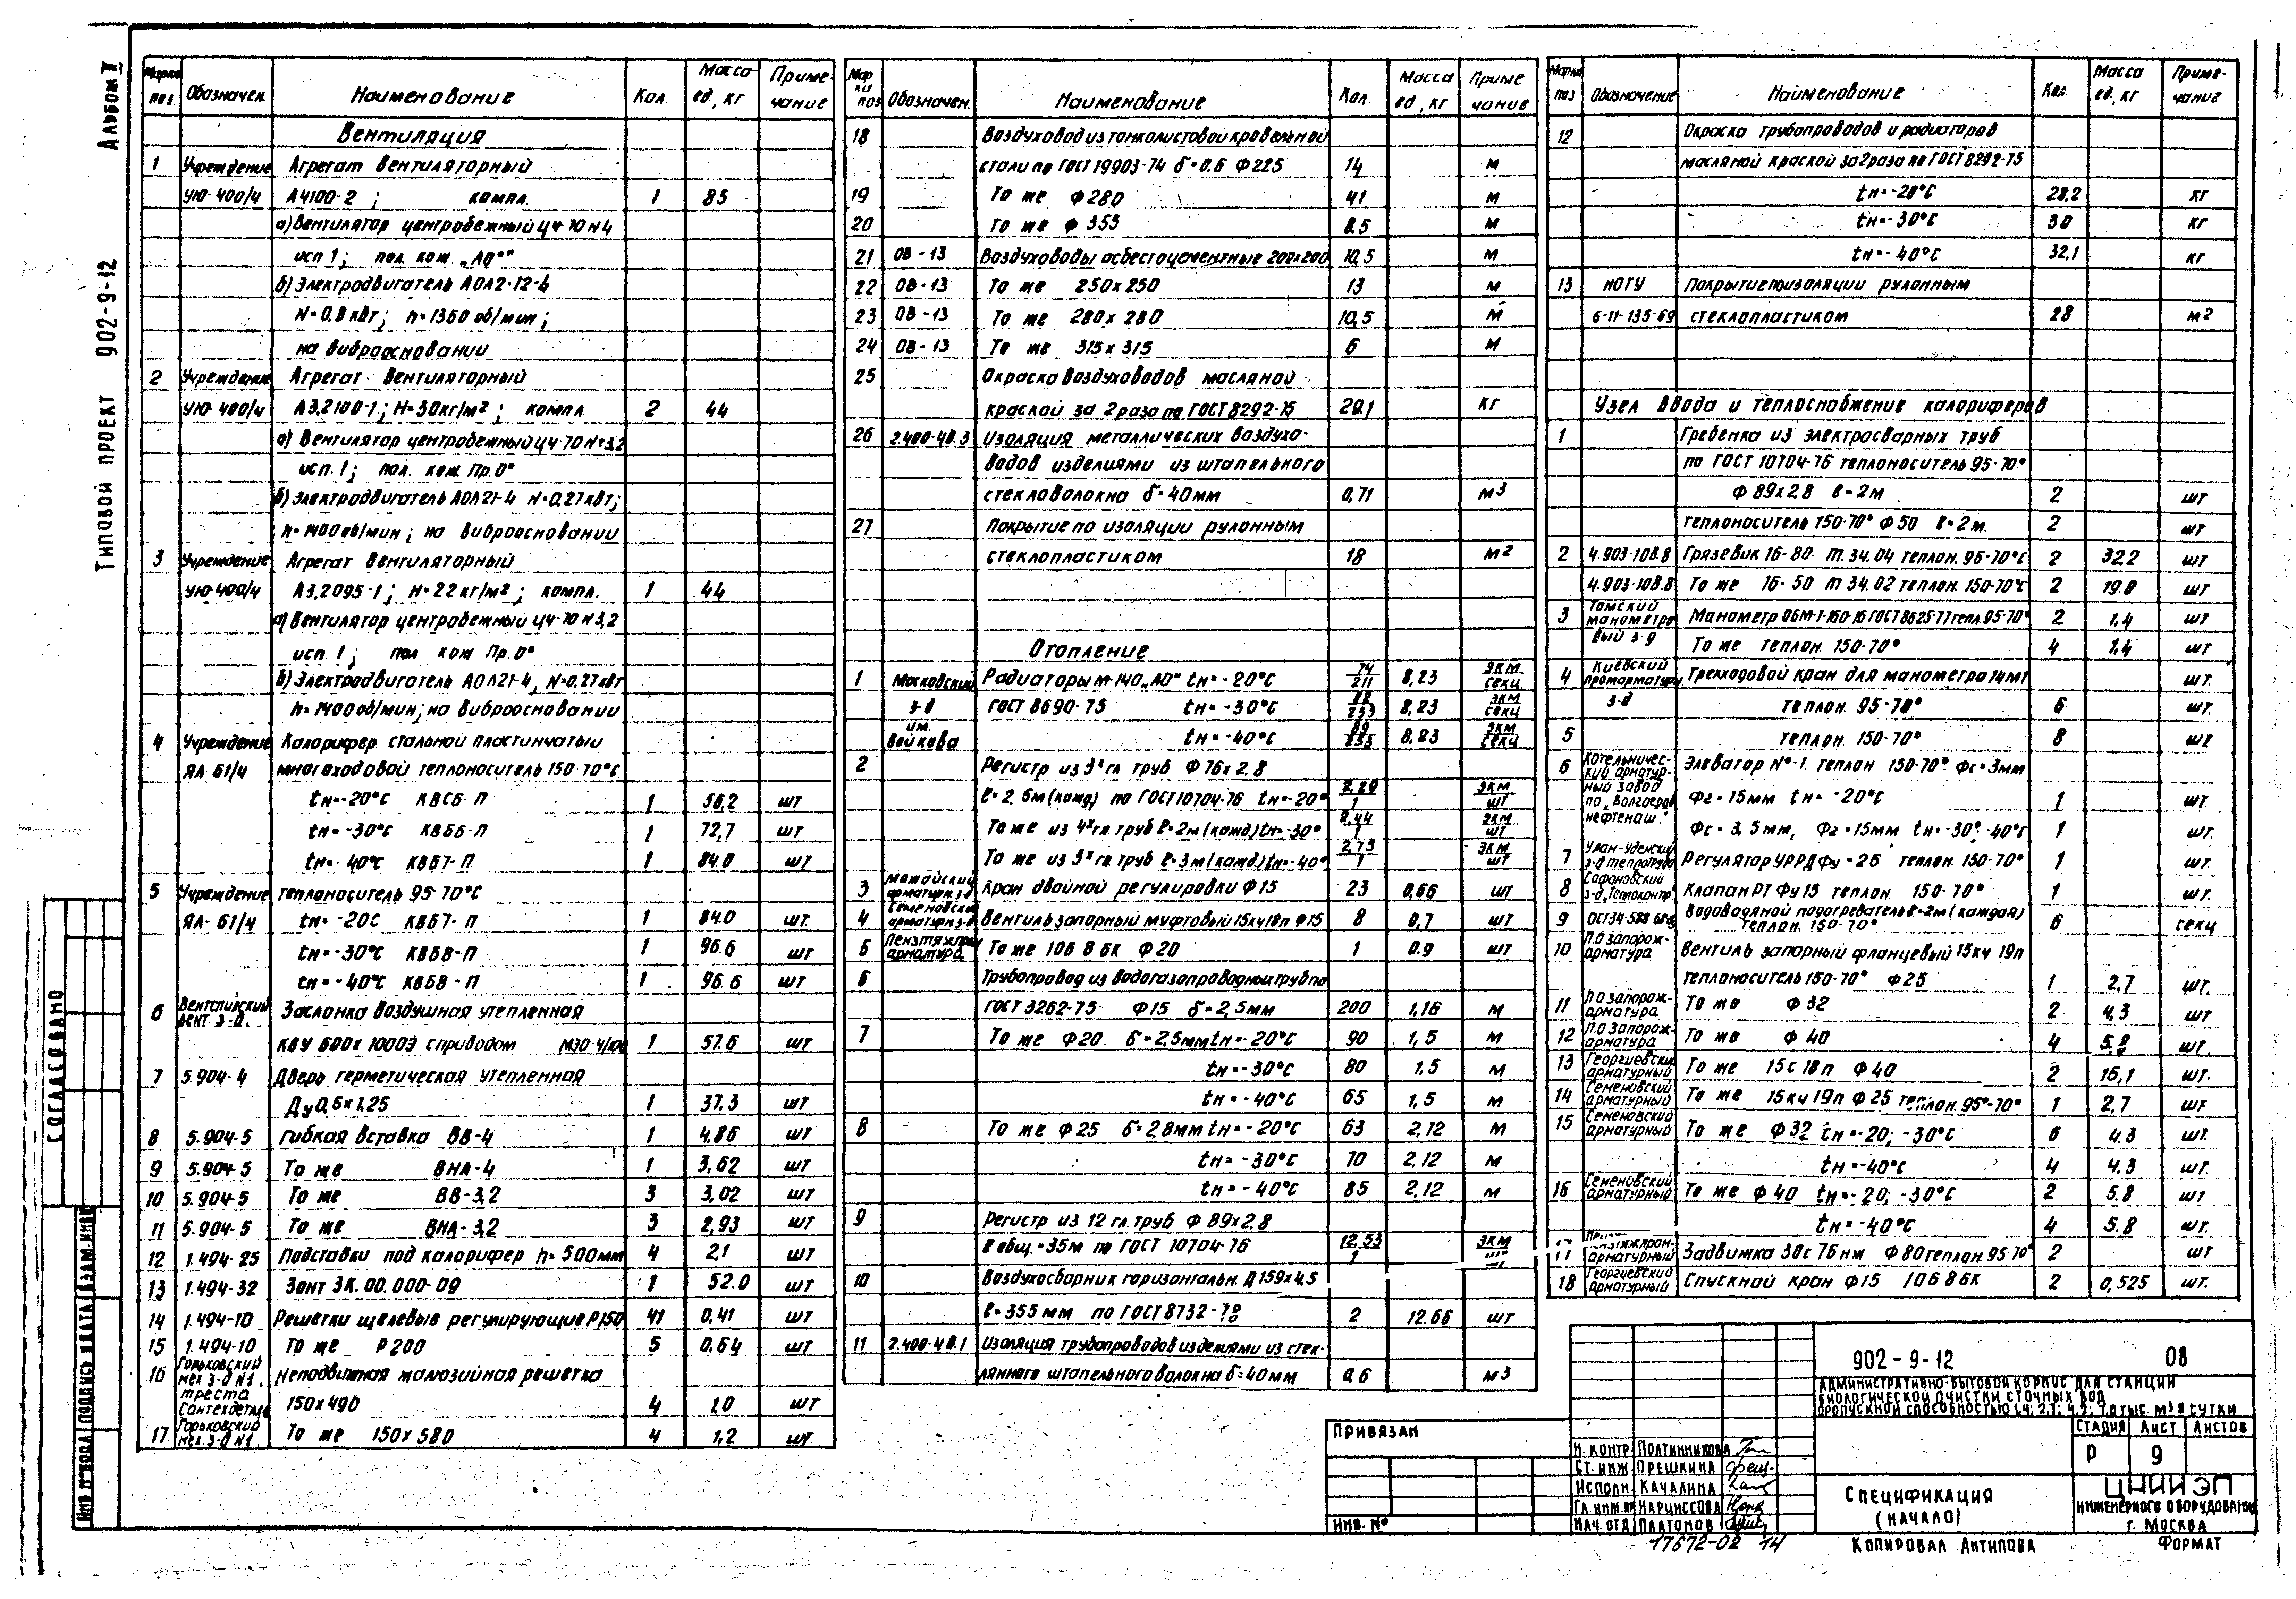 Альбом II
Типовой проект 902-9-12
Марка поз. Обозначен. Наименование Кол. Масса ед, кг Примечание
Вентиляция
1 Учреждение Агрегат вентиляторный
УЮ-400/4 А4100-2; компл. 1 85
а) Вентилятор центробежный Ц4-70 N4
исп 1; пол. кож. „Л0°"
б) Электродвигатель АОЛ2-12-4
N=0,8 кВт; n=1360 об/мин;
на виброосновании
2 Учреждение Агрегат вентиляторный
УЮ-400/4 А3,2100-1; Н=30кг/м²; компл. 2 44
а) Вентилятор центробежный Ц4-70 N=3,2
исп. 1; пол. кож. Пр.0°
б) Электродвигатель АОЛ21-4 N=0,27кВт;
n=1400об/мин.; на виброосновании
3 Учреждение Агрегат вентиляторный
УЮ-400/4 А3,2095-1; Н=22кг/м²; компл. 1 44
а) Вентилятор центробежный Ц4-70 N3,2
исп. 1; пол кож. Пр.0°
б) Электродвигатель АОЛ21-4, N=0,27кВт
n=1400об/мин; на виброосновании
4 Учреждение Калорифер стальной пластинчатый
ЯЛ 61/4 многоходовой теплоноситель 150-70°С
tн=-20°С КВС6-П 1 56,2 шт
tн=-30°С КВБ6-П 1 72,7 шт
tн=-40°С КВБ7-П 1 84.0 шт
5 Учреждение теплоноситель 95-70°С
ЯЛ-61/4 tн=-20С КВБ7-П 1 84.0 шт.
tн=-30°С КВБ8-П 1 96.6 шт
tн=-40°С КВБ8-П 1 96.6 шт
6 Вентспилсский вент з-д. Заслонка воздушная утепленная
КВУ 600х1000Э с приводом МЭО-4/100 1 57.6 шт
7 5.904-4 Дверь герметическая утепленная
Ду 0,6х1,25 1 37.3 шт
8 5.904-5 Гибкая вставка ВВ-4 1 4.86 шт
9 5.904-5 То же ВНА-4 1 3,62 шт
10 5.904-5 То же ВВ-3,2 3 3,02 шт
11 5.904-5 То же ВНА-3,2 3 2,93 шт
12 1.494-25 Подставки под калорифер h=500мм 4 2,1 шт
13 1.494-32 Зонт ЗК.00.000-09 1 52.0 шт
14 1.494-10 Решетки щелевые регулирующие Р150 41 0.41 шт
15 1.494-10 То же Р200 5 0,64 шт
16 Горьковский мех з-д N1. треста Сантехдеталь Неподвижная жалюзийная решетка
150х490 4 1,0 шт
17 Горьковский мех. з-д N1. То же 150х580 4 1,2 шт.
Марки поз Обозначен. Наименование Кол. Масса ед, кг Примечание
18 Воздуховод из тонколистовой кровельной
стали по ГОСТ 19903-74 δ=0,6 Ф225 14 м
19 То же Ф280 41 м
20 То же Ф355 8.5 м
21 ОВ-13 Воздуховоды асбестоцементные 200х200 10,5 м
22 ОВ-13 То же 250х250 13 м
23 ОВ-13 То же 280х280 10,5 м
24 ОВ-13 То же 315х315 6 м
25 Окраска воздуховодов масляной
краской за 2 раза по ГОСТ 8292-75 20.1 кг
26 2.400-4В.3 Изоляция металлических воздухо-
водов изделиями из штапельного
стекловолокна δ=40мм 0,71 м3
27 Покрытие по изоляции рулонным
стеклопластиком 18 м2
Отопление
1 Московский Радиаторы м-140„АО" tн=-20°С 74/211 8,23 экм/секц
з-д ГОСТ 8690-75 tн=-30°С 82/233 8,23 экм/секц
им. Войкова tн=-40°С 89/255 8,23 экм/секц
2 Регистр из 3х гл труб Ф76х2.8
ℓ=2,5м(кажд) по ГОСТ 10704-76 tн=-20° 2,20/1 экм/шт
То же из 4х гл. труб ℓ=2м (кажд.) tн=-30° 2,44/1 экм/шт
То же из 3х гл труб ℓ=3м (кажд.) tн=-40° 2,73/1 экм/шт
3 Можайский арматурн. з-д Кран двойной регулировки Ф15 23 0,66 шт
4 Семеновский арматурн. з-д Вентиль запорный муфтовый 15кч18п Ф15 8 0,7 шт
5 Пензтяжпром арматура То же 10Б 8 бк Ф20 1 0.9 шт
6 Трубопровод из водогазопроводных труб по
ГОСТ 3262-75 Ф15 δ=2,5мм 200 1,16 м
7 То же Ф20 δ=2,5мм tн=-20°С 90 1,5 м
tн=-30°С 80 1.5 м
tн=-40°С 65 1,5 м
8 То же Ф25 δ=2,8мм tн=-20°С 63 2,12 м
tн=-30°С 70 2,12 м
tн=-40°С 85 2,12 м
9 Регистр из 12 гл. труб Ф89х2.8
ℓ общ.=35м по ГОСТ 10704-76 12.53/1 экм/шт
10 Воздухосборник горизонтальн. Д159х4,5
ℓ=355мм по ГОСТ 8732-78 2 12.66 шт
11 2.400-4В.1 Изоляция трубопроводов изделиями из стек-
лянного штапельного волокна δ=40мм 0,6 м3
Марка поз Обозначение Наименование Кол. Масса ед., кг Примечание
12 Окраска трубопроводов и радиаторов
масляной краской за 2 раза по ГОСТ 8292-75
tн=-20°С 28,2 кг
tн=-30°С 30 кг
tн=-40°С 32,1 кг
13 МОТУ Покрытие поизоляции рулонным
6-11-135-69 стеклопластиком 28 м2
Узел ввода и теплоснабжение калориферов
1 Гребенка из электросварных труб
по ГОСТ 10704-76 теплоноситель 95-70°
Ф89х2,8 ℓ=2м 2 шт
теплоноситель 150-70° Ф50 ℓ=2м. 2 шт
2 4.903-10в.8 Грязевик 16-80 т.34.04 теплон. 95-70°С 2 32.2 шт
4.903-10в.8 То же 16-50 т 34.02 теплон. 150-70°С 2 19.8 шт
3 Томский манометровый з-д Манометр ОБМ-1-160-16 ГОСТ 8625-77 тепл. 95-70° 2 1,4 шт
То же теплон. 150-70° 4 1,4 шт
4 Киевский промарматуры з-д Трехходовой кран для манометра 14м1 шт.
теплон. 95-70° 6 шт.
5 теплон. 150-70° 8 шт
6 Котельничес- кий арматур- ный завод по „Волгоград нефтемаш" Элеватор №-1. теплон. 150-70° Фс=3мм
Фг=15мм tн=-20°С 1 шт.
Фс=3,5мм, Фг=15мм tн=-30°-40°С 1 шт.
7 Улан-Уденский з-д теплоприбор Регулятор УРРД фу=25 теплон. 150-70° 1 шт.
8 Сафоновский з-д „Теплоконтр" Клапан РТ Фу15 теплон. 150-70° 1 шт.
9 ОСТ34-588-68 Водоводяной подогреватель ℓ=2м (каждая)
теплон. 150-70° 6 секц
10 П.О запорож- арматура Вентиль запорный фланцевый 15кч 19п
теплоноситель 150-70° Ф25 1 2,7 шт.
11 П.О запорож- арматура То же Ф32 2 4,3 шт
12 П.О Запорож- арматура То же Ф40 4 5.8 шт.
13 Георгиевский арматурный То же 15с18п Ф40 2 16,1 шт.
14 Семеновский арматурный То же 15кч19п Ф25 теплон. 95°-70° 1 2,7 шт
15 Семеновский арматурный То же Ф32 tн=-20; -30°С 6 4.3 шт.
tн=-40°С 4 4.3 шт.
16 Семеновский арматурный То же Ф40 tн=-20; -30°С 2 5.8 шт
tн=-40°С 4 5.8 шт.
17 арматурный Задвижка 30с76нж Ф80 теплон. 95-70° 2 шт
18 Георгиевский арматурный Спускной кран Ф15 10Б8бк 2 0,525 шт.
902-9-12 ОВ
Административно-бытовой корпус для станции
биологической очистки сточных вод
пропускной способностью 1,4; 2,7; 4,2; 7,0 тыс. м3 в сутки
Стадия Лист Листов
Р 9
Спецификация
(начало)
ЦНИИЭП
инженерного оборудования
г. Москва
Привязан
Инв. №
Н. контр. Полтинникова
Ст. инж. Орешкина
Исполн. Качалина
Гл. инж. пр Нарциссова
Нач. отд Платонов
17672-02 14
Копировал Антипова
Формат
Согласовано
Инв. № подл Подпись и дата Взам. инв